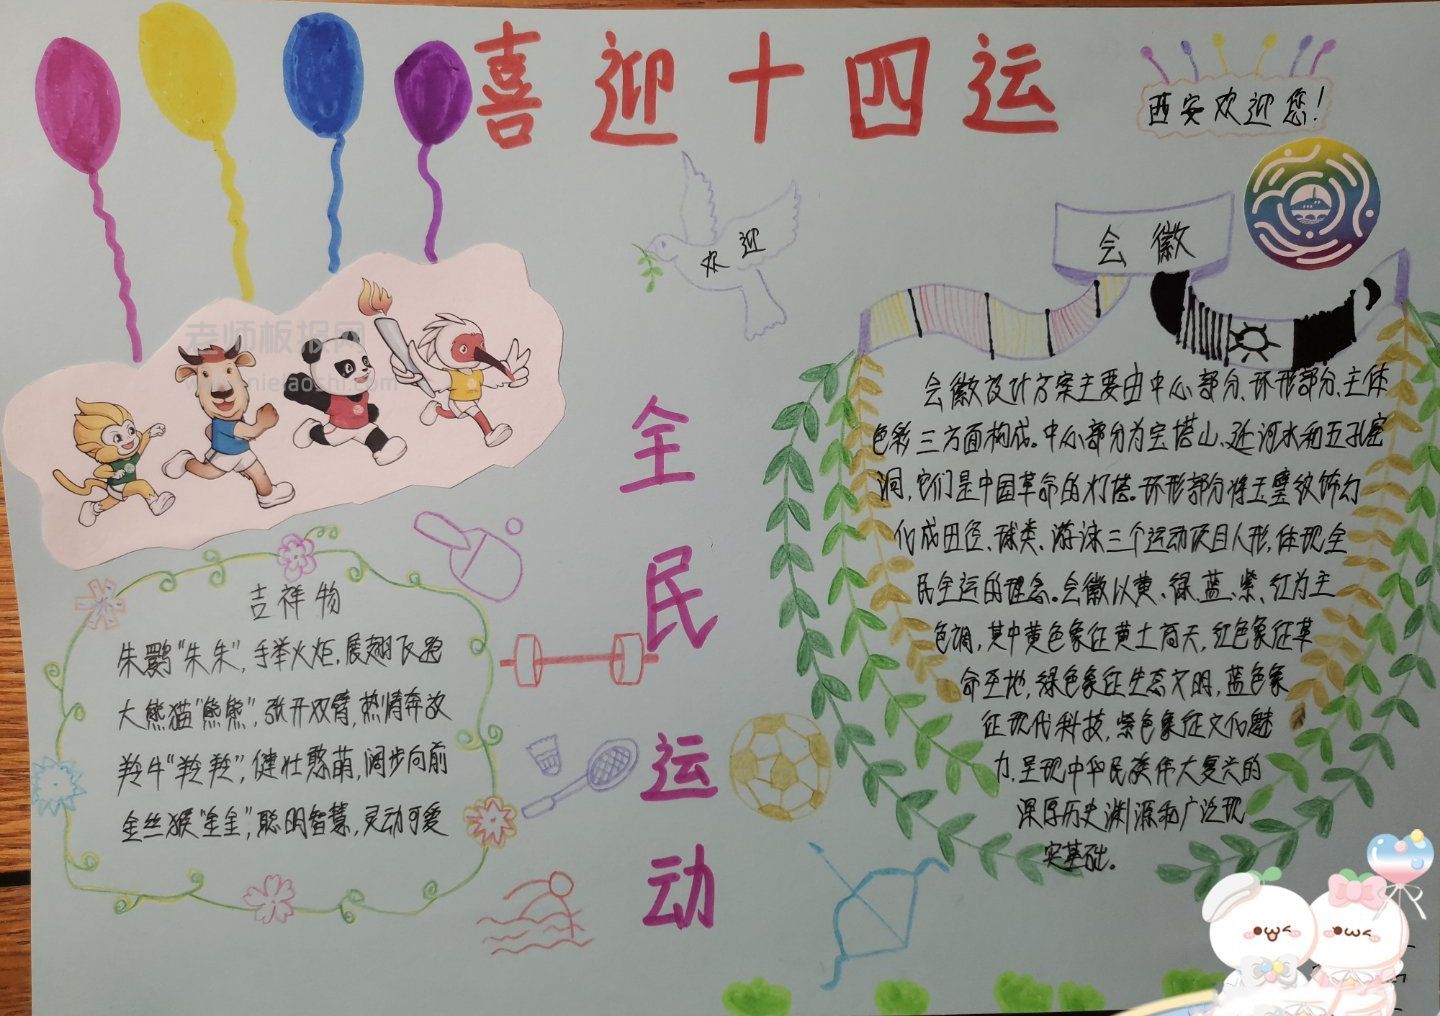 喜迎十四运
西安欢迎您！
欢迎
会徽
老师板报网
全民运动
会徽设计方案主要由中心部分、环形部分、主体
色彩三方面构成。中心部分为宝塔山、延河水和五孔窑
洞，它们是中国革命的灯塔。环形部分将玉璧纹饰幻
化成田径、球类、游泳三个运动项目人形，体现全
民全运的理念。会徽以黄、绿、蓝、紫、红为主
色调，其中黄色象征黄土高天，红色象征革
命圣地，绿色象征生态文明，蓝色象
征现代科技，紫色象征文化魅
力，呈现中华民族伟大复兴的
深厚历史渊源和广泛现
实基础。
吉祥物
朱鹮“朱朱”，手举火炬，展翅飞跑
大熊猫“熊熊”，张开双臂，热情奔放
羚牛“羚羚”，健壮憨萌，阔步向前
金丝猴“金金”，聪明智慧，灵动可爱